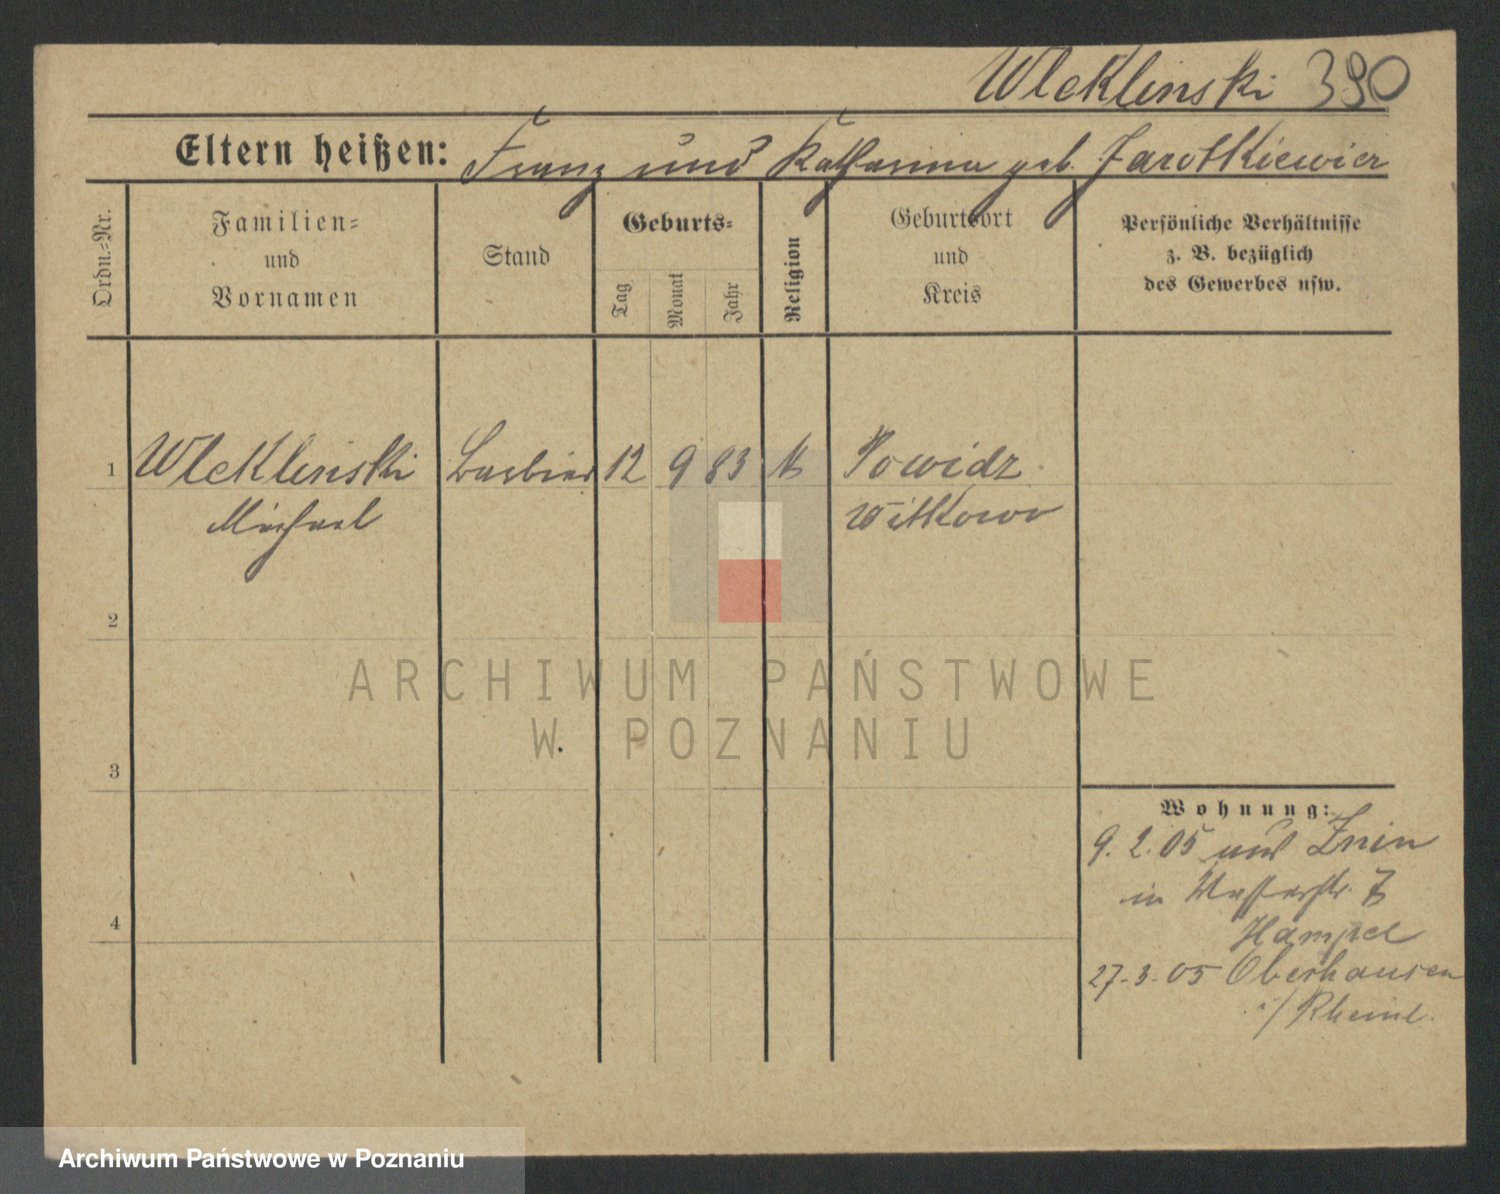 Wleklinski 390
Eltern heißen: Franz und Katharina geb. Jarotkiewicz
Ordn.-Nr.
Familien-
und
Vornamen
Stand
Geburts-
Tag
Monat
Jahr
Religion
Geburtsort
und
Kreis
Persönliche Verhältnisse
z. B. bezüglich
des Gewerbes usw.
1 Wleklinski Barbier 12 9 83 k Powidz
Michael Witkowo
2
3
4
Wohnung:
9. 2. 05 aus Znin
in Wasserstr. 7
Hampel
27-3-05 Oberhausen
i/ Rheinl.
ARCHIWUM PAŃSTWOWE
W POZNANIU
Archiwum Państwowe w Poznaniu